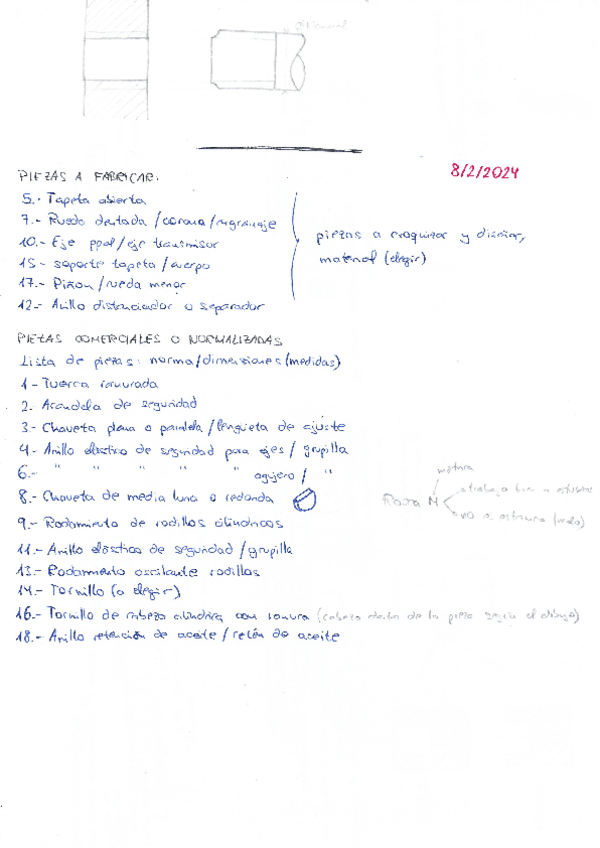 8/2/2024
PIEZAS A FABRICAR:
5.- Tapeta abierta
7.- Rueda dentada / corona / engranaje
10.- Eje ppal / eje transmisor
15.- soporte tapeta / cuerpo
17.- Piñon / rueda menor
12.- Anillo distanciador o separador
piezas a croquizar y diseñar,
material (elegir)
PIEZAS COMERCIALES O NORMALIZADAS
Lista de piezas: norma/dimensiones (medidas)
1.- Tuerca ranurada
2.- Arandela de seguridad
3.- Chaveta plana o paralela / lengüeta de ajuste
4.- Anillo elástico de seguridad para ejes / grupilla
6.- " " " " " agujero / "
8.- Chaveta de media luna o redonda
9.- Rodamiento de rodillos cilíndricos
11.- Anillo elástico de seguridad / grupilla
13.- Rodamiento oscilante rodillos
14.- Tornillo (a elegir)
16.- Tornillo de cabeza cilíndrica con ranura (cabeza dentro de la pieza según el dibujo)
18.- Anillo retención de aceite / retén de aceite
Rosca M
métrica
trabaja bien a esfuerzo
no a